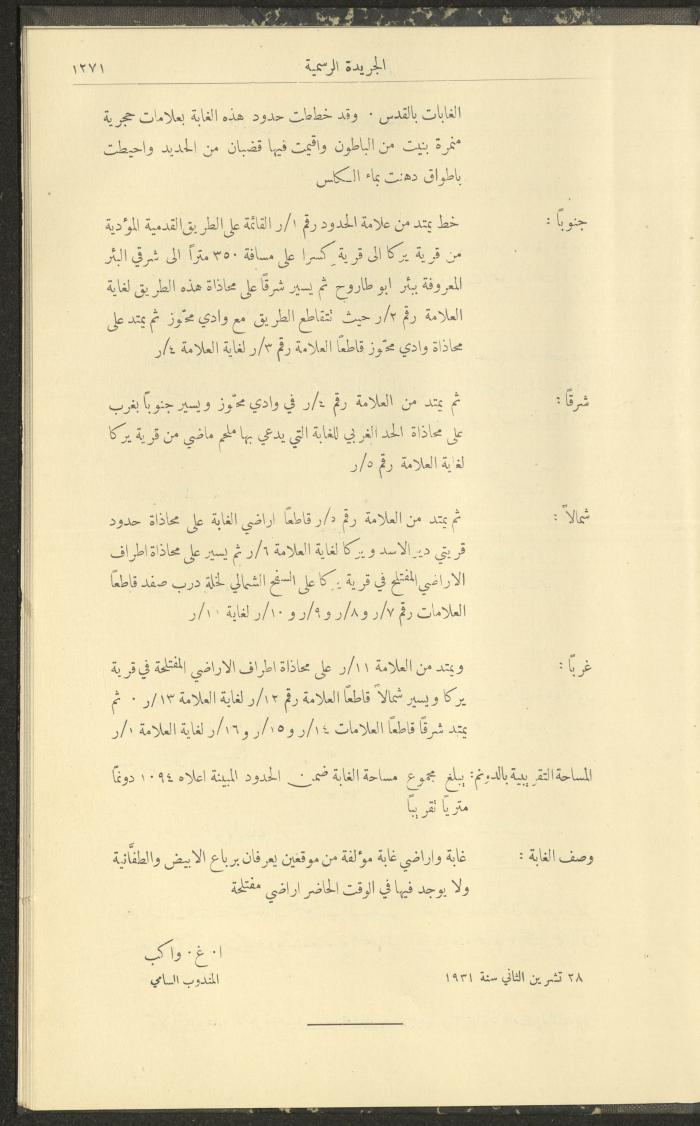 الجريدة الرسمية ١٢٧١
الغابات بالقدس ٠ وقد خططت حدود هذه الغابة بعلامات حجرية
منمرة بنيت من الباطون واقيمت فيها قضبان من الحديد واحيطت
باطواق دهنت بماء الكلس
جنوباً : خط يمتد من علامة الحدود رقم ١/ر القائمة على الطريق القدمية المؤدية
من قرية يركا الى قرية كسرا على مسافة ٣٥٠ متراً الى شرقي البئر
المعروفة ببئر ابو طاروح ثم يسير شرقاً على محاذاة هذه الطريق لغاية
العلامة رقم ٢/ر حيث تتقاطع الطريق مع وادي محّوز ثم يمتد على
محاذاة وادي محّوز قاطعاً العلامة رقم ٣/ر لغاية العلامة ٤/ر
شرقاً : ثم يمتد من العلامة رقم ٤/ر في وادي محّوز ويسير جنوباً بغرب
على محاذاة الحد الغربي للغابة التي يدعي بها ملحم ماضي من قرية يركا
لغاية العلامة رقم ٥/ر
شمالاً : ثم يمتد من العلامة رقم ٥/ر قاطعاً اراضي الغابة على محاذاة حدود
قريتي دير الاسد ويركا لغاية العلامة ٦/ر ثم يسير على محاذاة اطراف
الاراضي المفتلح في قرية يركا على السفح الشمالي لخلة درب صفد قاطعاً
العلامات رقم ٧/ر و٨/ر و٩/ر و١٠/ر لغاية ١١/ر
غرباً : ويمتد من العلامة ١١/ر على محاذاة اطراف الاراضي المفتلحة في قرية
يركا ويسير شمالاً قاطعاً العلامة رقم ١٢/ر لغاية العلامة ١٣/ر ٠ ثم
يمتد شرقاً قاطعاً العلامات ١٤/ر و١٥/ر و١٦/ر لغاية العلامة ١/ر
المساحة التقريبية بالدونم: يبلغ مجموع مساحة الغابة ضمن الحدود المبينة اعلاه ١٠٩٤ دونماً
مترياً تقريباً
وصف الغابة : غابة واراضي غابة مؤلفة من موقعين يعرفان برباع الابيض والطفّانية
ولا يوجد فيها في الوقت الحاضر اراضي مفتلحة
ا٠ غ٠ واكب
٢٨ تشرين الثاني سنة ١٩٣١ المندوب السامي